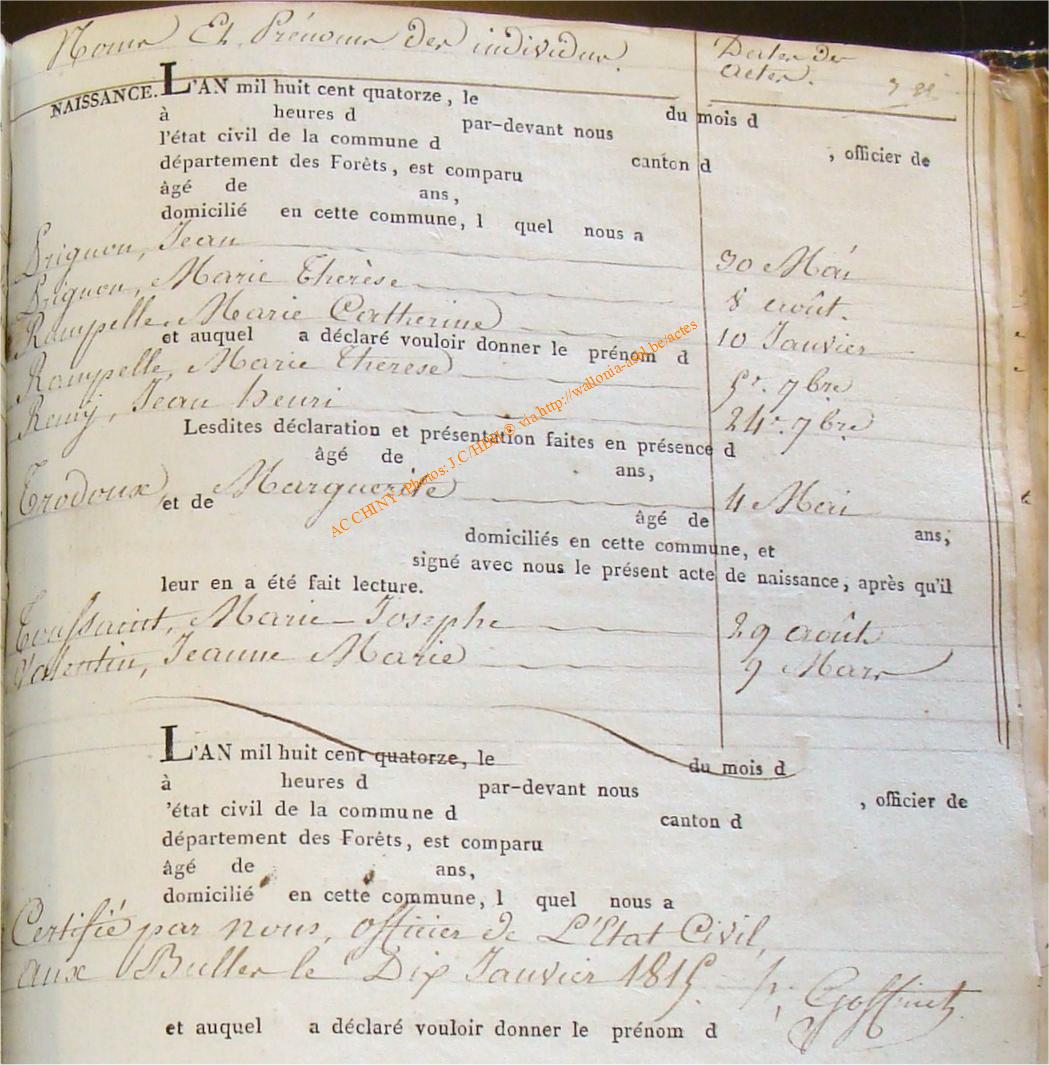 Noms Et Prénoms des individus.
Dates des
actes.
NAISSANCE. L'AN mil huit cent quatorze, le du mois d
à heures d par-devant nous , officier de
l'état civil de la commune d canton d
département des Forêts, est comparu
âgé de ans,
domicilié en cette commune, l quel nous a
Prignon, Jean 30 Mai
Prignon, Marie Thérèse 8 août.
Rampelle, Marie Catherine 10 Janvier
et auquel a déclaré vouloir donner le prénom d
Rampelle, Marie Thérèse 5r. 7bre
Remy, Jean henri 24r. 7bre
Lesdites déclaration et présentation faites en présence d
âgé de ans,
Trodoux, Marguerite 4 Mai
et de âgé de ans,
domiciliés en cette commune, et
signé avec nous le présent acte de naissance, après qu'il
leur en a été fait lecture.
Toussaint, Marie Josephe 29 août
Valentin, Jeanne Marie 9 Mars
L'AN mil huit cent quatorze, le du mois d
à heures d par-devant nous , officier de
'état civil de la commune d canton d
département des Forêts, est comparu
âgé de ans,
domicilié en cette commune, l quel nous a
Certifié par nous, officier de L'Etat Civil,
aux Bulles le Dix Janvier 1815. h. Goffinet
et auquel a déclaré vouloir donner le prénom d
AC CHINY - Photos: J.C/HBN® via http://wallonia-asbl.be/actes